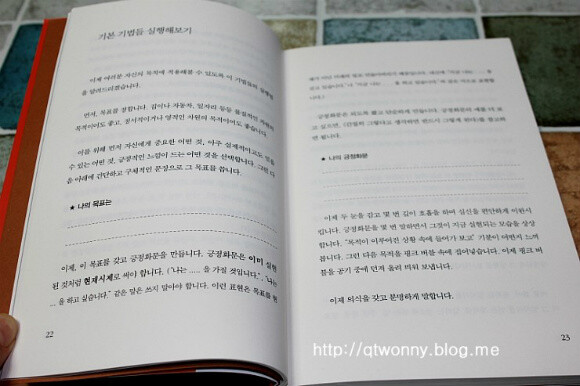 기본 기법을 실행해보기
이제 여러분 자신의 목적에 적용해볼 수 있도록 이 기법들의
을 알려드리겠습니다.
먼저, 목표를 정합니다. 집이나 자동차, 일자리 등등 물질적인 차원의
목적이어도 좋고, 정서적이거나 영적인 차원의 목적이어도 좋습니다.
이를 위해 먼저 자신에게 중요한 어떤 것, 아주 실제적이고도 믿을
수 있는 어떤 것, 긍정적인 느낌이 드는 어떤 것을 선택합니다. 그런 다
음 아래에 간단하고 구체적인 문장으로 그 목표를 씁니다.
★ 나의 목표는
이제, 이 목표를 갖고 긍정화문을 만듭니다. 긍정화문은 이미 실현
된 것처럼 현재시제로 써야 합니다. ("나는 …… 을 가질 것입니다.", "나는
… 을 하고 싶습니다." 같은 말은 쓰지 말아야 합니다. 이런 표현은 목표를 현
22
긍정화문은 되도록 짧고 단순하게 만듭니다. 긍정화문의 예를 더 보
고 싶으면,
면 됩니다.
★ 나의 긍정화문
이제 두 눈을 감고 몇 번 깊이 호흡을 하며 심신을 편안하게 이완시
킵니다. 긍정화문을 몇 번 말하면서 그것이 지금 실현되는 모습을 상상
합니다. "목적이 이루어진 상황 속에 들어가 보고" 기분이 어떤지 느껴
봅니다. 그런 다음 목적을 핑크 버블 속에 집어넣습니다. 이제 핑크 버
블을 공기 중에 던져 올려 띄워 보냅니다.
이제 의식을 갖고 분명하게 말합니다.
23
http://qtwonny.blog.me